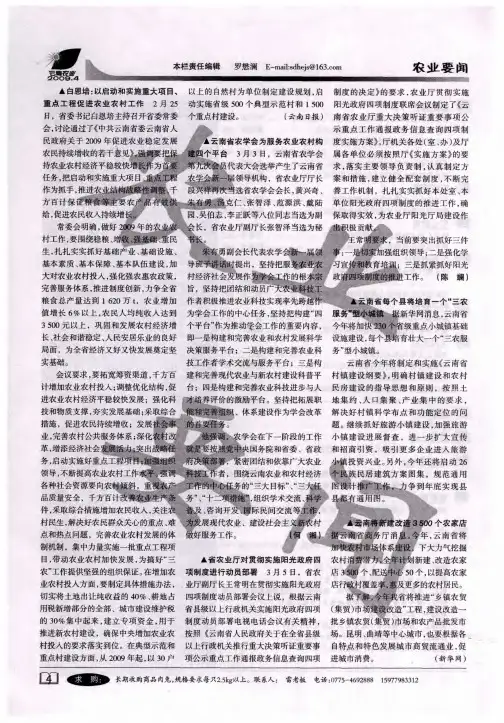 云南农业
2009.4
本栏责任编辑 罗懋澜 E-mail:sdhejs@163.com
农业要闻
▲白恩培:以启动和实施重大项目、
重点工程促进农业农村工作 2月25
日,省委书记白恩培主持召开省委常委
会,讨论通过了《中共云南省委云南省人
民政府关于2009年促进农业稳定发展
农民持续增收的若干意见》,强调要把保
持农业农村经济平稳较快增长作为首要
任务,把启动和实施重大项目、重点工程
作为抓手,推进农业结构战略性调整,千
方百计保证粮食等主要农产品有效供
给,促进农民收入持续增长。
常委会明确,做好2009年的农业农
村工作,要围绕稳粮、增收、强基础、重民
生,扎扎实实抓好基础产业、基础设施、
基本素质、基本保障、基本队伍建设,加
大对农业农村投入,强化强农惠农政策,
完善服务体系,推进制度创新,力争全省
粮食总产量达到1620万t,农业增加
值增长6%以上,农民人均纯收入达到
3500元以上,巩固和发展农村经济增
长,社会和谐稳定,人民安居乐业的良好
局面,为全省经济又好又快发展奠定坚
实基础。
会议要求,要拓宽筹资渠道,千方百
计增加农业农村投入;调整优化结构,促
进农业农村经济平稳较快发展;强化科
技和物质支撑,夯实发展基础;采取综合
措施,促进农民持续增收;发展社会事
业,完善农村公共服务体系;深化农村改
革,增添经济社会发展活力;突出战略任
务,启动实施好重点工程项目;加强组织
领导,不断提高农业农村工作水平。强调
各种社会资源要向农村倾斜,重视农产
品质量安全,千方百计改善农业生产条
件,采取综合措施增加农民收入,关注农
村民生,解决好农民群众关心的重点、难
点和热点问题,完善农业农村发展的体
制机制,集中力量实施一批重点工程项
目,带动农业农村加快发展,为搞好“三
农”工作提供坚强的组织保证。在增加农
业农村投入方面,要制定具体措施办法,
切实将土地出让纯收益的40%、耕地占
用税新增部分的全部、城市建设维护税
的30%集中起来,建立专项资金,用于
推进新农村建设,确保中央增加农业农
村投入的要求落实到位。在典型示范和
重点村建设方面,从2009年起,以30户
以上的自然村为单位制定建设规划,启
动实施省级500个典型示范村和1500
个重点村建设。 (云南日报)
▲云南省农学会为服务农业农村构
建四个平台 3月3日,云南省农学会
第九次会员代表大会选举产生了云南省
农学会新一届领导机构。省农业厅厅长
段兴祥再次当选省农学会会长,黄兴奇、
朱有勇、施克仁、张智泽、范源洪、戴陆
园、吴伯志、李正跃等八位同志当选为副
会长,省农业厅副厅长张智泽当选为秘
书长。
朱有勇副会长代表农学会新一届领
导班子讲话时提出,坚持把服务农业农
村经济社会发展作为学会工作的根本宗
旨,坚持把团结和动员广大农业科技工
作者积极推进农业科技实现率先跨越作
为学会工作的中心任务,坚持把构建“四
个平台”作为推动学会工作的重要内容,
即一是构建和完善农业和农村发展科学
决策服务平台;二是构建和完善农业科
技工作者学术交流与服务平台;三是构
建和完善现代农业与新农村建设科普平
台;四是构建和完善农业科技进步与人
才培养评价的激励平台。坚持把拓展职
能和完善组织、体系建设作为学会改革
的首要任务。
强调,农学会在下一阶段的工作
就是要按照党中央国务院和省委、省政
府决策部署,紧密团结和依靠广大农业
科技工作者,围绕云南农业和农村经济
工作的中心任务的“三大目标”、“三大任
务”、“十二项措施”,组织学术交流、科学
普及、咨询开发、国际民间交流等工作,
为发展现代农业、建设社会主义新农村
做好服务工作。
▲省农业厅对贯彻实施阳光政府四
项制度进行动员部署 3月5日,省农
业厅副厅长王常明在贯彻实施阳光政府
四项制度动员部署会议上说,根据云南
省县级以上行政机关实施阳光政府四项
制度动员部署电视电话会议有关精神,
按照《云南省人民政府关于在全省县级
以上行政机关推行重大决策听证重要事
项公示重点工作通报政务信息查询四项
制度的决定》的要求,农业厅贯彻实施
阳光政府四项制度联席会议制定了《云
南省农业厅重大决策听证重要事项公
示重点工作通报政务信息查询四项制
度实施方案》,厅机关各处(室、办)及厅
属各单位必须按照厅《实施方案》的要
求,落实主要领导负责制,认真制定方
案和措施,建立健全配套制度,不断完
善工作机制,扎扎实实抓好本处室、本
单位阳光政府四项制度的推进工作,确
保取得实效,为农业厅阳光厅局建设作
出积极贡献。
王常明要求,当前要突出抓好三件
事:一是切实加强组织领导;二是强化学
习宣传和教育培训;三是抓紧抓好阳光
政府四项制度的推进工作。 (陈 斓)
▲云南省每个县将培育一个“三农
服务”型小城镇 据新华网消息,云南省
今年将加快230个省级重点小城镇基础
设施建设,每个县培育壮大一个“三农服
务”型小城镇。
云南省今年将制定和实施《云南省
村镇建设纲要》,明确村镇建设和农村
民房建设的指导思想和原则,按照土
地集约、人口集聚、产业集中的要求,
解决好村镇科学布点和功能定位的问
题。继续抓好旅游小镇建设,加强旅游
小镇建设进展督查,进一步扩大宣传
和招商引资,吸引更多企业进入旅游
小镇投资兴业。另外,今年还将启动26
个民族民居建筑方案图集、规范通用
图设计推广工作,力争到年底实现县
县都有通用图。
▲云南将新建改造3500个农家店
据云南省商务厅消息,今年,云南省将
加快农村市场体系建设,下大力气挖掘
农村消费潜力,全年计划新建、改造农家
店3500个、配送中心50个,以提高农家
店行政村覆盖率,惠及更多的农村居民。
今年我省将推进“乡镇农贸
(集贸)市场建设改造”工程,建设改造一
批乡镇农贸(集贸)市场和农产品批发市
场。昆明、曲靖等中心城市,也要根据各
自特点和特色发展城市商贸流通业,促
进城市消费。 (新华网)
4 求 购: 长期收购商品肉兔,规格要求每只2.5kg以上。联系人: 雷老板 电话:0775-4692888 15977983312